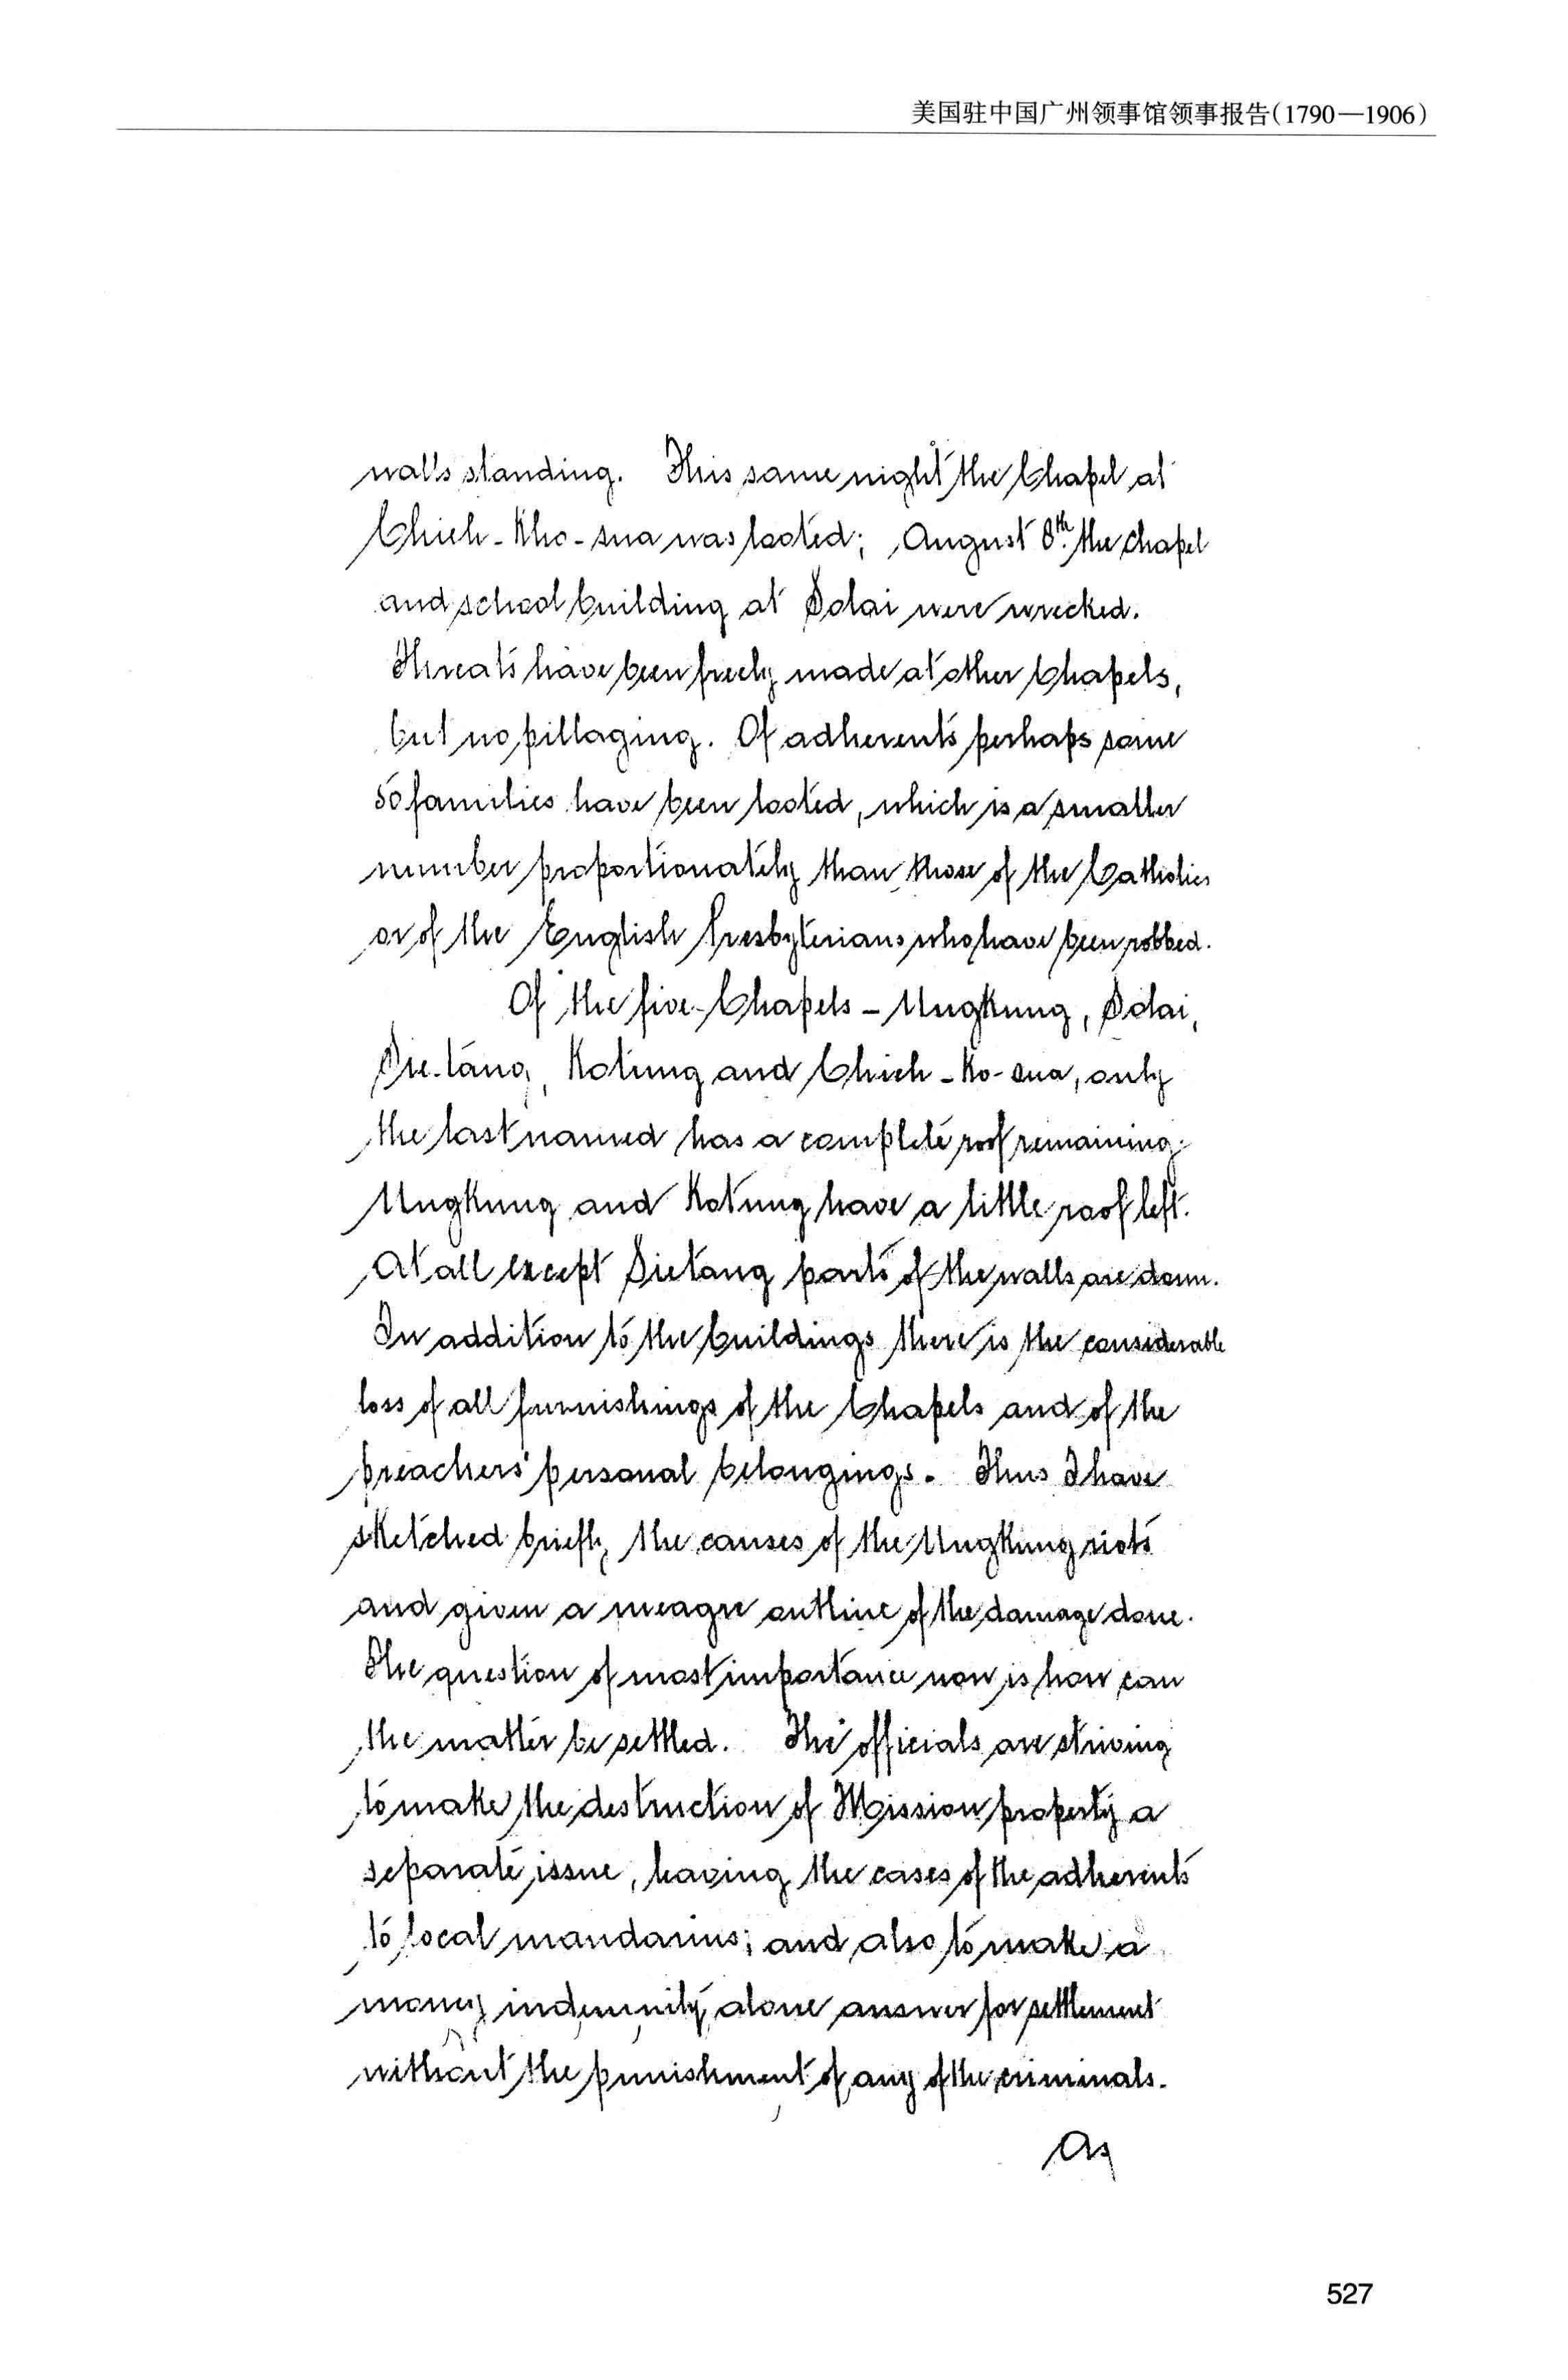 美国驻中国广州领事馆领事报告(1790—1906)
walls standing. This same night the Chapel at
Chieh-Kho-sua was looted; August 8th. the chapel
and school building at Solai were wrecked.
Threats have been freely made at other Chapels,
but no pillaging. Of adherents perhaps some
50 families have been looted, which is a smaller
number proportionately than those of the Catholics
or of the English Presbyterians who have been robbed.
Of the five Chapels - Ungkung, Solai,
Sie-tang, Kotung and Chieh-Ko-sua, only
the last named has a complete roof remaining;
Ungkung and Kotung have a little roof left.
At all except Sietang parts of the walls are down.
In addition to the buildings there is the considerable
loss of all furnishings of the Chapels and of the
preachers' personal belongings. Thus I have
sketched briefly the causes of the Ungkung riots
and given a meagre outline of the damage done.
The question of most importance now is how can
the matter be settled. The officials are striving
to make the destruction of Mission property a
separate issue, leaving the cases of the adherents
to local mandarins; and also to make a
money indemnity alone answer for settlement
without the punishment of any of the criminals.
As
527